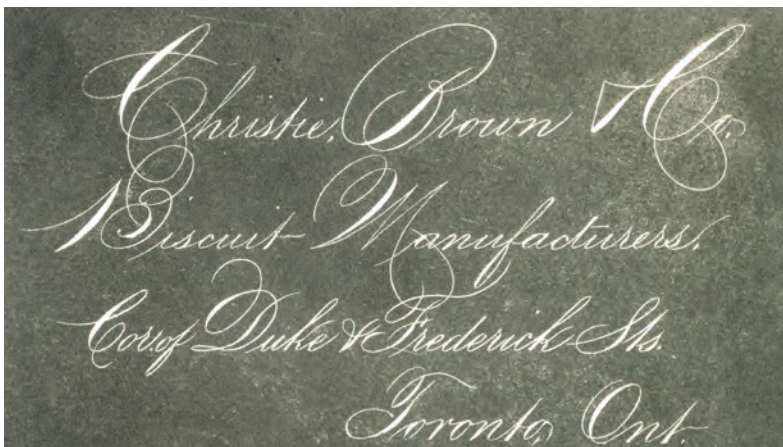 Christie, Brown & Co.
Biscuit Manufacturers.
Cor. of Duke & Frederick Sts.
Toronto, Ont